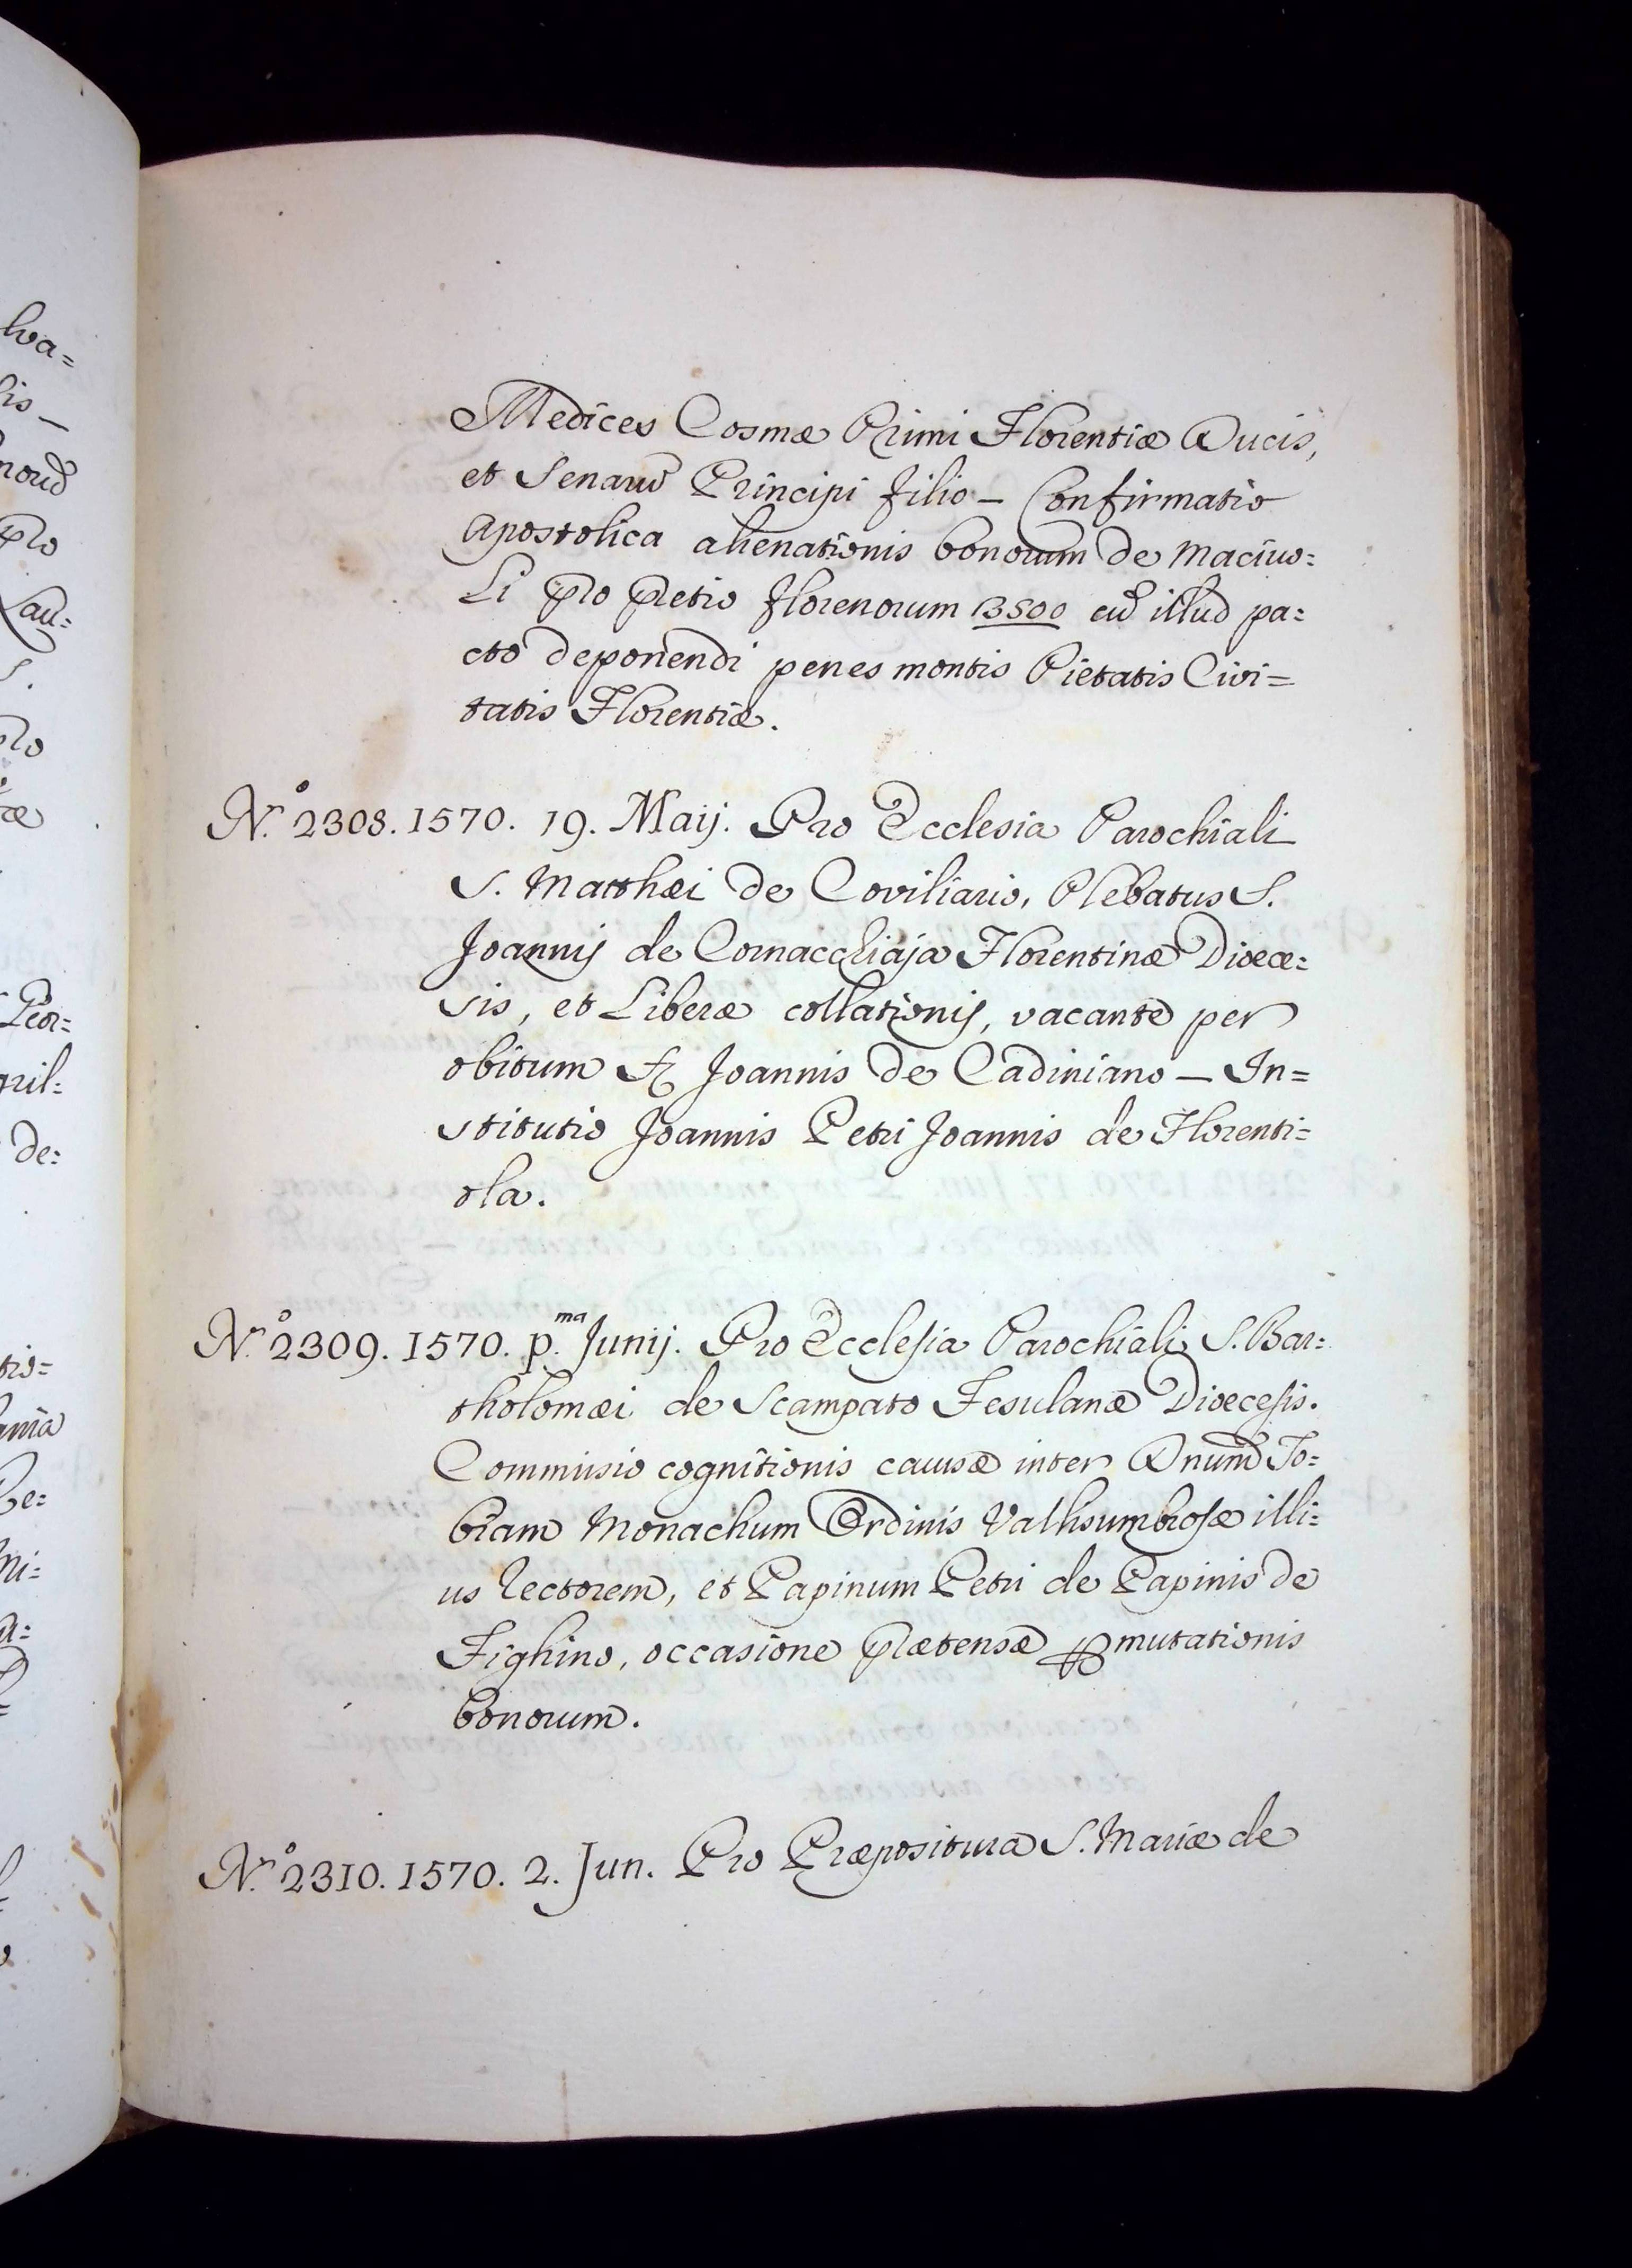 Medices Cosmæ Primi Florentiæ Ducis,
et Senarũ Principi filio – Confirmatio
Apostolica alienationis bonorum de Maciuo=
li pro pretio florenorum 13500 cũ illud pa=
cto deponendi penes montis Pietatis Civi=
tatis Florentiæ.
N.º 2308. 1570. 19. Maij. Pro Ecclesia Parochiali
S. Matthæi de Coviliario, Plebatus S.
Joannis de Cornacchiaja Florentinæ Diœce=
sis, et Liberæ collationis, vacante per
obitum Joannis de Cadiniano – In=
stitutio Joannis Petri Joannis de Florenti=
ola.
N.º 2309. 1570. p.ma Junij. Pro Ecclesia Parochiali S. Bar=
tholomæi de Scampato Fesulanæ Diœcesis.
Commissio cognitionis causæ inter Dnum To=
biam Monachum Ordinis Vallisumbrosæ illi=
us Rectorem, et Papinum Petri de Papinis de
Fighino, occasione prætensæ ꝑmutationis
bonorum.
N.º 2310. 1570. 2. Jun. Pro Præpositura S. Mariæ de
lva=
lis –
pro
Lau=
S.
de=